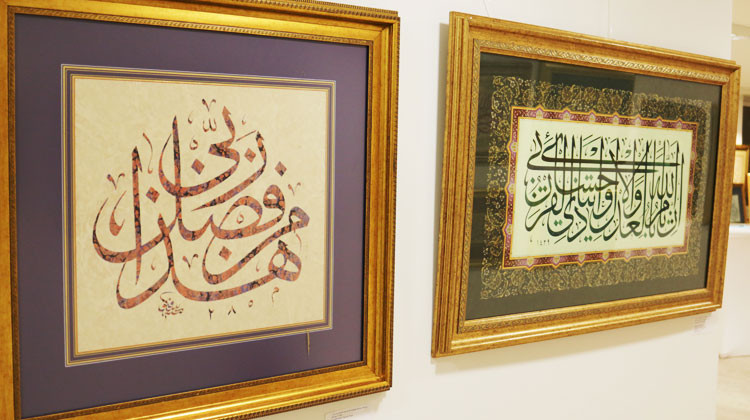 هذا من فضل ربي
إن الله يأمر بالعدل والإحسان وإيتاء ذي القربى